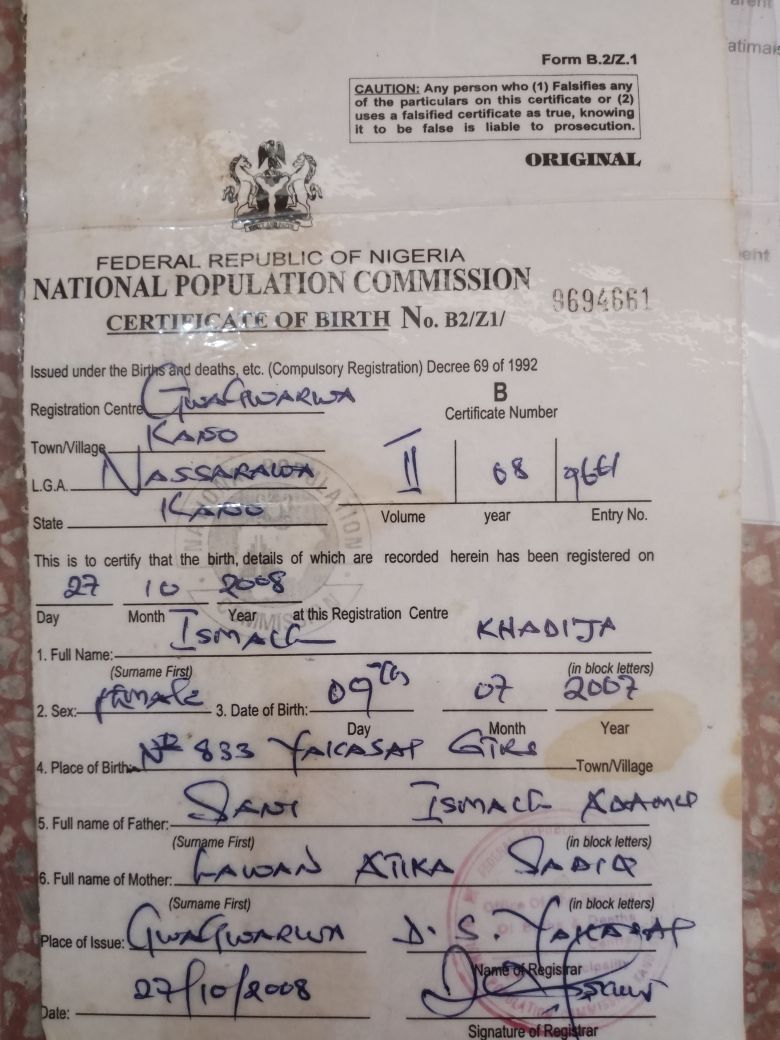 Form B.2/Z.1
CAUTION: Any person who (1) Falsifies any
of the particulars on this certificate or (2)
uses a falsified certificate as true, knowing
it to be false is liable to prosecution.
ORIGINAL
FEDERAL REPUBLIC OF NIGERIA
NATIONAL POPULATION COMMISSION
CERTIFICATE OF BIRTH No. B2/Z1/ 9694661
Issued under the Births and deaths, etc. (Compulsory Registration) Decree 69 of 1992
Registration Centre GWAGWARWA
B
Certificate Number
Town/Village KANO
L.G.A. NASSARAWA
II 08 9661
State KANO
Volume year Entry No.
This is to certify that the birth, details of which are recorded herein has been registered on
27 10 2008
Day Month Year at this Registration Centre
1. Full Name: ISMAIL KHADIJA
(Surname First) (in block letters)
2. Sex: female 3. Date of Birth: 09th 07 2007
Day Month Year
4. Place of Birth: No 833 YAKASAI Town/Village
5. Full name of Father: SANI ISMAIL ADAMU
(Surname First) (in block letters)
6. Full name of Mother: LAWAN ATIKA SADIQ
(Surname First) (in block letters)
Place of Issue: GWAGWARWA D. S. YAKASAI
Name of Registrar
Date: 27/10/2008
Signature of Registrar